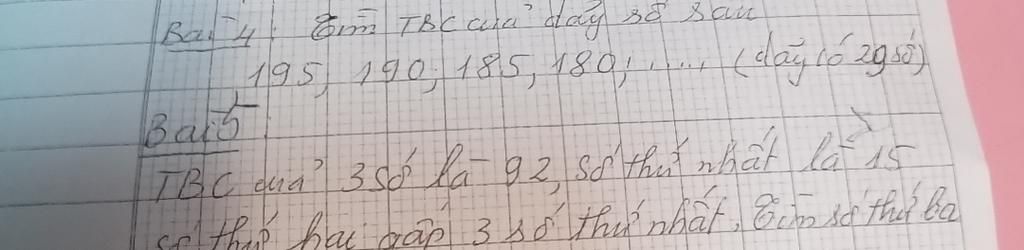 Bài 4: Tìm TBC của dãy số sau
195, 190, 185, 180, ..... (dãy có 29 số)
Bài 5
TBC của 3 số là 92, số thứ nhất là 15
số thứ hai gấp 3 số thứ nhất. Tìm số thứ ba